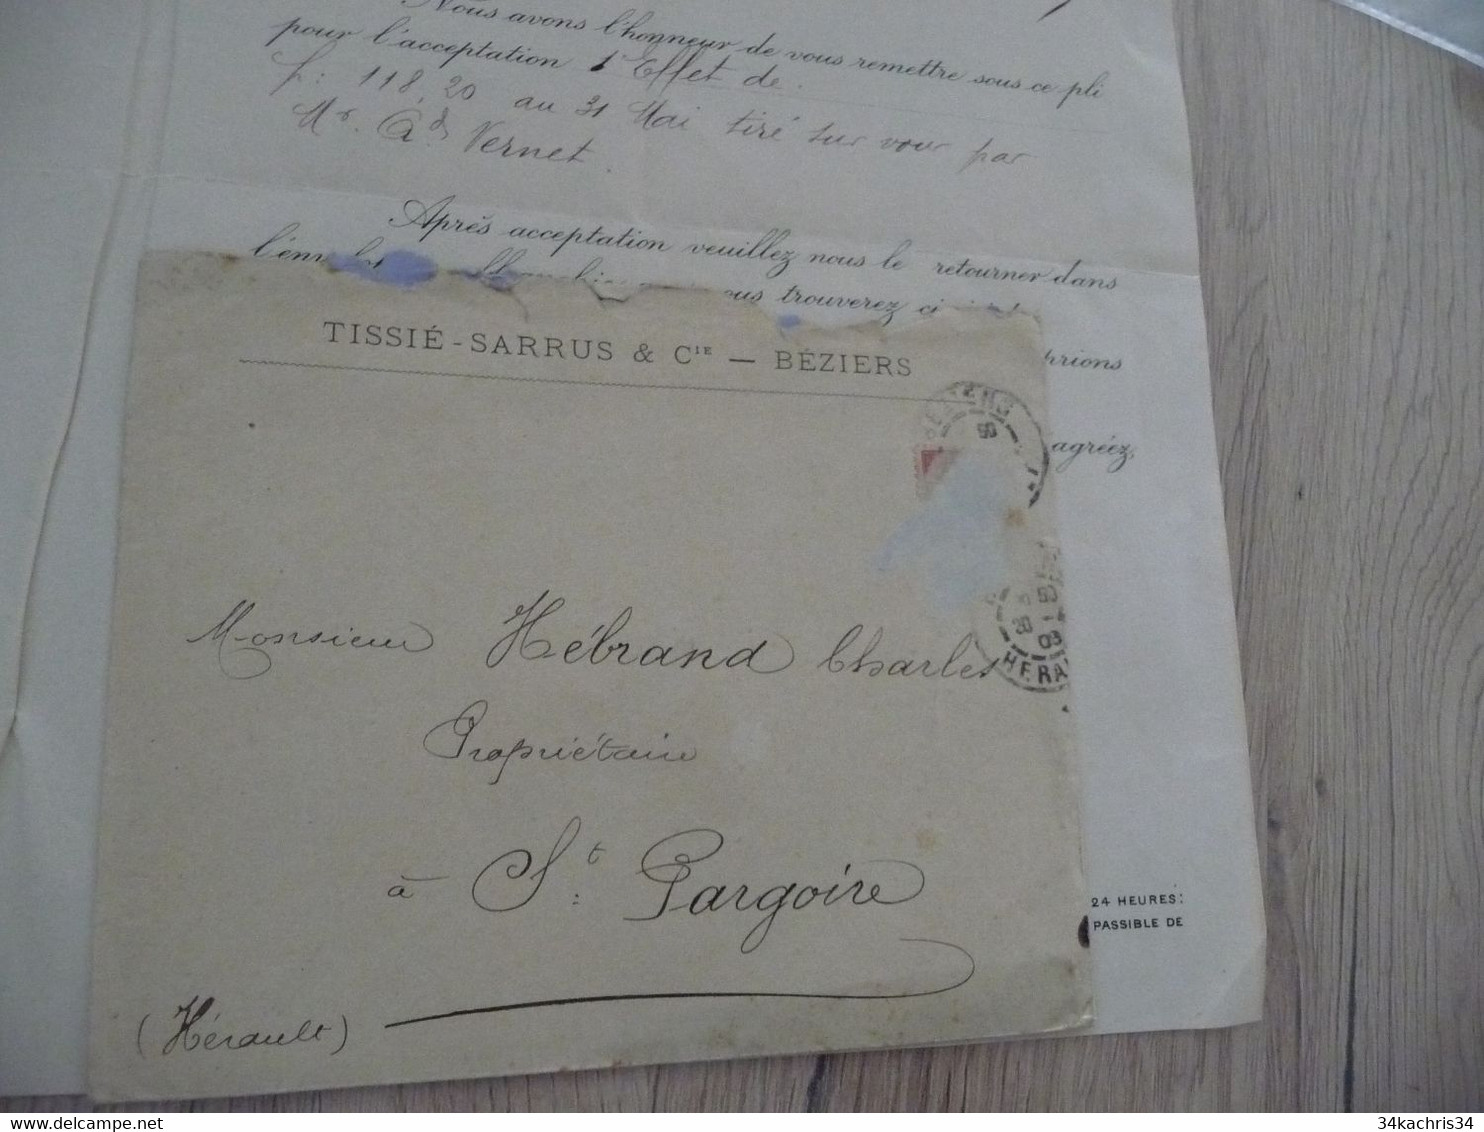 Nous avons l'honneur de vous remettre sous ce pli
pour l'acceptation 1 Effet de
f: 118,20 au 31 Mai tiré sur vous par
Mr. Ad Vernet
Après acceptation veuillez nous le retourner dans
vous trouverez ci
prions
agréez,
TISSIÉ-SARRUS & CIE — BÉZIERS
BEZIERS
HERAU
Monsieur Hébrand Charles
Propriétaire
à St: Pargoire
(Hérault)
24 HEURES:
PASSIBLE DE
delcampe.net
34kachris34